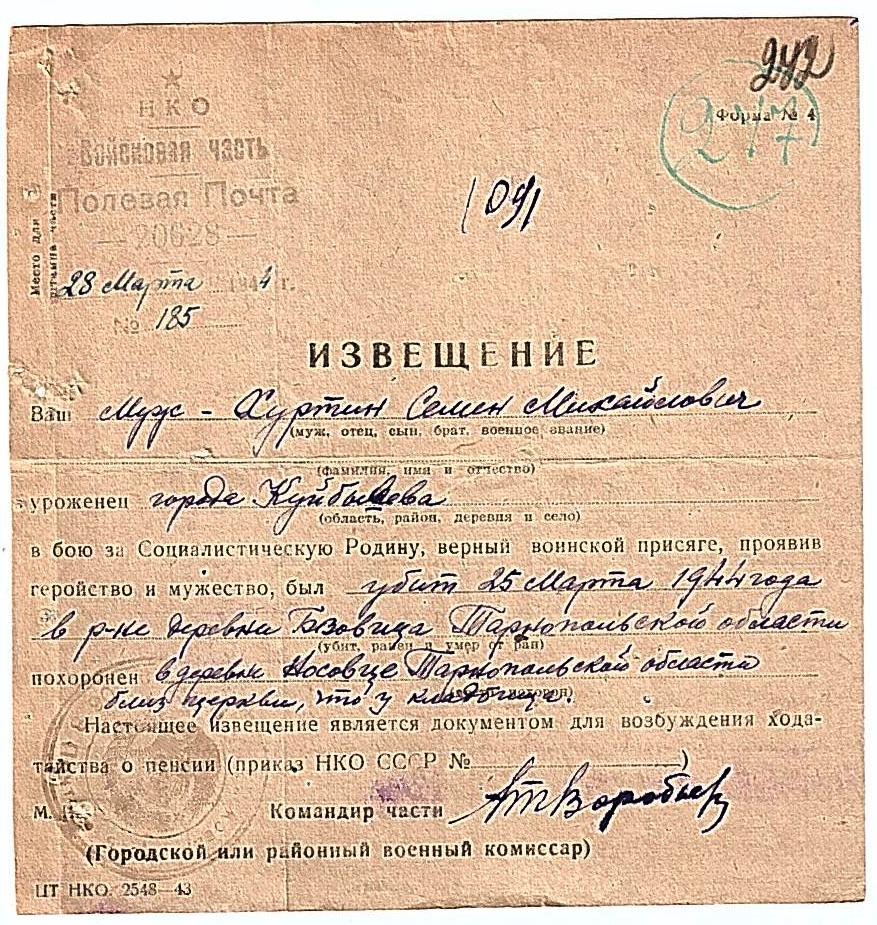 242
Форма № 4
247
НКО
Войсковая часть
Полевая Почта
— 20628 —
1091
Место для
штампа части
28 Марта 1944 г.
№ 185
ИЗВЕЩЕНИЕ
Ваш муж - Хуртин Семен Михайлович
(муж, отец, сын, брат, военное звание)
(фамилия, имя и отчество)
уроженец города Куйбышева
(область, район, деревня и село)
в бою за Социалистическую Родину, верный воинской присяге, проявив
геройство и мужество, был убит 25 Марта 1944 года
в р-не деревни Бзовица Тарнопольской области
(убит, ранен и умер от ран)
похоронен в деревни Носовце Тарнопольской области
близ церкви, что у кладбища.
Настоящее извещение является документом для возбуждения хода-
тайства о пенсии (приказ НКО СССР № )
М. П. Командир части Воробьев
(Городской или районный военный комиссар)
ЦТ НКО. 2548—43